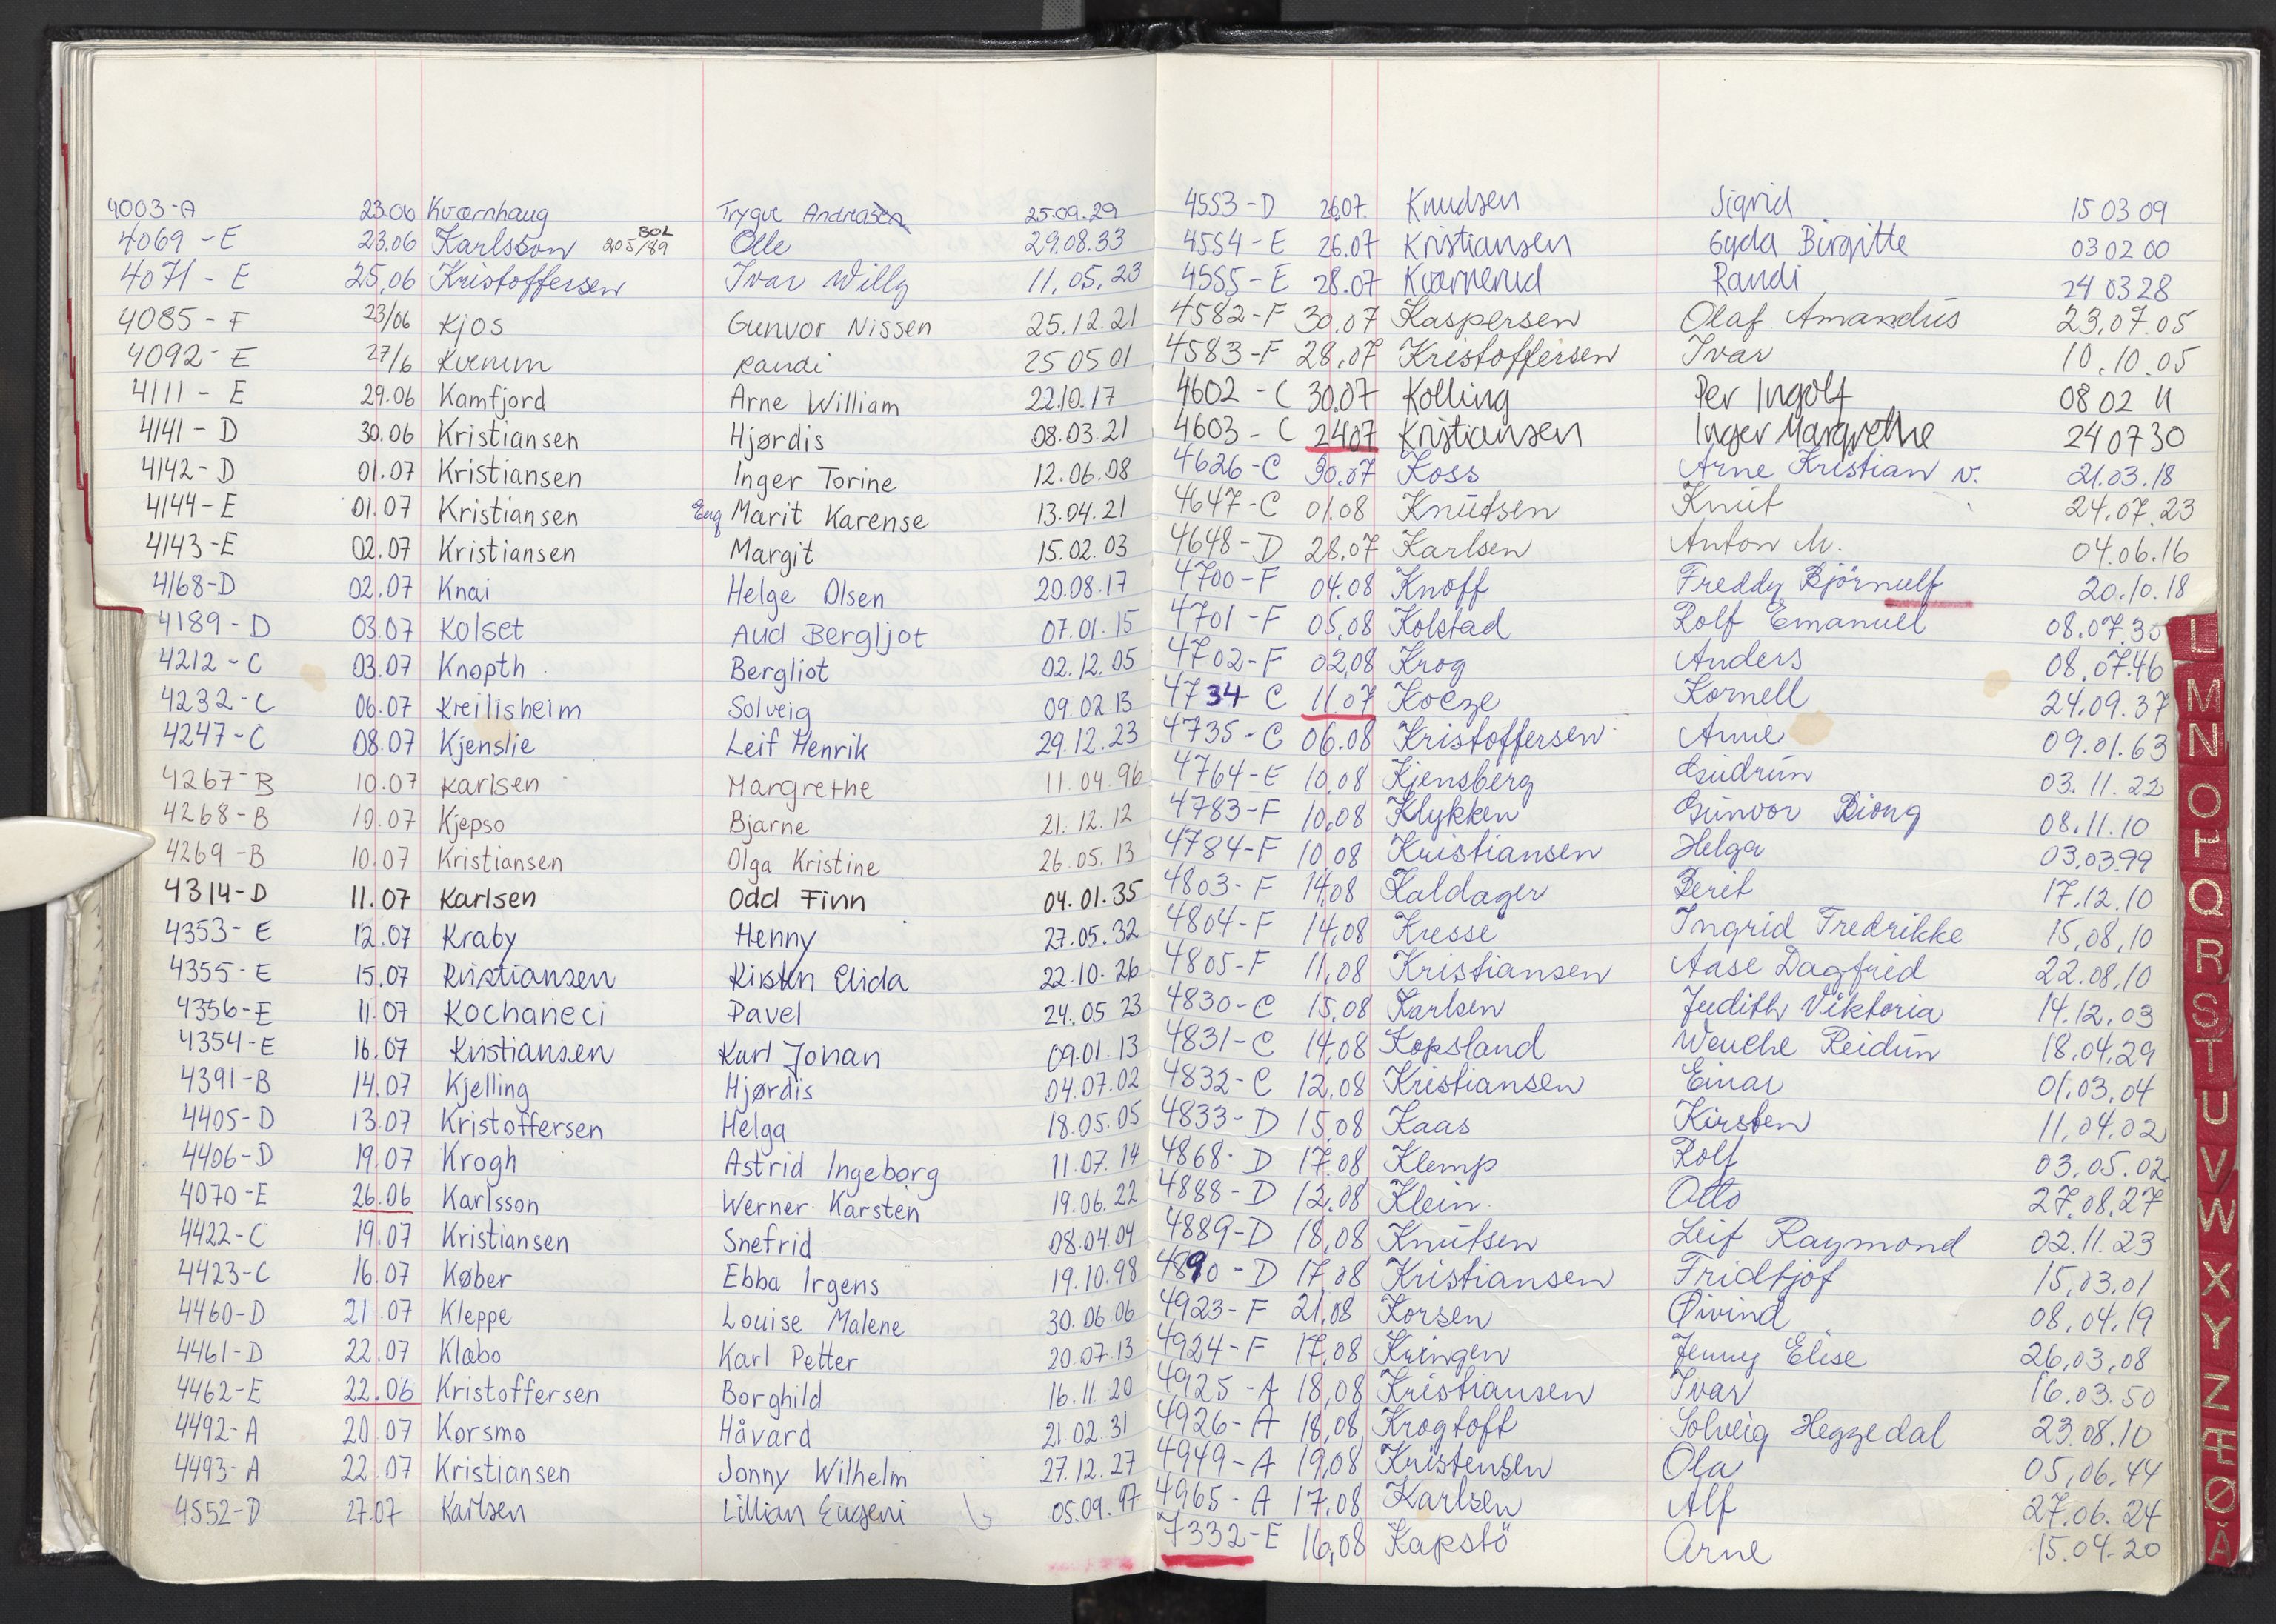 4003-A 23.06 Kværnhaug Trygve Andreasen 25.09.29
4069-E 23.06 Karlsson 205/89 BOL Olle 29.08.33
4071-E 25.06 Kristoffersen Ivar Willy 11.05.23
4085-F 23/06 Kjos Gunvor Nissen 25.12.21
4092-E 27/6 Kvenum Randi 25 05 01
4111-E 29.06 Kamfjord Arne William 22.10.17
4141-D 30.06 Kristiansen Hjørdis 08.03.21
4142-D 01.07 Kristiansen Inger Torine 12.06.08
4144-E 01.07 Kristiansen Eng Marit Karense 13.04.21
4143-E 02.07 Kristiansen Margit 15.02.03
4168-D 02.07 Knai Helge Olsen 20.08.17
4189-D 03.07 Kolset Aud Bergljot 07.01.15
4212-C 03.07 Knopth Bergliot 02.12.05
4232-C 06.07 Kreilisheim Solveig 09.02.13
4247-C 08.07 Kjenslie Leif Henrik 29.12.23
4267-B 10.07 Karlsen Margrethe 11.04.96
4268-B 10.07 Kjepso Bjarne 21.12.12
4269-B 10.07 Kristiansen Olga Kristine 26.05.13
4314-D 11.07 Karlsen Odd Finn 04.01.35
4353-E 12.07 Kraby Henny 27.05.32
4355-E 15.07 Kristiansen Kirsten Elida 22.10.26
4356-E 11.07 Kochaneci Pavel 24.05 23
4354-E 16.07 Kristiansen Karl Johan 09.01.13
4391-B 14.07 Kjelling Hjørdis 04.07.02
4405-D 13.07 Kristoffersen Helga 18.05.05
4406-D 19.07 Krogh Astrid Ingeborg 11.07.14
4070-E 26.06 Karlsson Werner Karsten 19.06.22
4422-C 19.07 Kristiansen Snefrid 08.04.04
4423-C 16.07 Køber Ebba Irgens 19.10.98
4460-D 21.07 Kleppe Louise Malene 30.06.06
4461-D 22.07 Klæbo Karl Petter 20.07.13
4462-E 22.06 Kristoffersen Borghild 16.11.20
4492-A 20.07 Korsmo Håvard 21.02.31
4493-A 22.07 Kristiansen Jonny Wilhelm 27.12.27
4552-D 27.07 Karlsen Lillian Eugeni 05.09.97
4553-D 26.07. Knudsen Sigrid 15 03 09
4554-E 26.07 Kristiansen Gyda Birgitte 03 02 00
4555-E 28.07 Kværnerud Randi 24 03 28
4582-F 30.07 Kaspersen Olaf Amandus 23.07.05
4583-F 28.07 Kristoffersen Ivar 10.10.05
4602-C 30.07 Kolling Per Ingolf 08 02 11
4603-C 24.07 Kristiansen Inger Margrethe 24 07 30
4626-C 30.07 Koss Arne Kristian v. 21.03.18
4647-C 01.08 Knutsen Knut 24.07.23
4648-D 28.07 Karlsen Anton M. 04.06.16
4700-F 04.08 Knoff Freddy Björnulf 20.10.18
4701-F 05.08 Kolstad Rolf Emanuel 08.07.30
4702-F 02.08 Krog Anders 08.07.46
4734-C 11.07 Koeze Kornell 24.09.37
4735-C 06.08 Kristoffersen Arne 09.01.63
4764-E 10.08 Kjensberg Gudrun 03.11.22
4783-F 10.08 Klykken Gunvor Biong 08.11.10
4784-F 10.08 Kristiansen Helga 03.03.99
4803-F 14.08 Kaldager Berit 17.12.10
4804-F 14.08 Kresse Ingrid Fredrikke 15.08.10
4805-F 11.08 Kristiansen Aase Dagfrid 22.08.10
4830-C 15.08 Karlsen Judith Viktoria 14.12.03
4831-C 14.08 Kopsland Wenche Reidun 18.04.29
4832-C 12.08 Kristiansen Einar 01.03.04
4833-D 15.08 Kaas Kirsten 11.04.02
4868-D 17.08 Klemp Rolf 03.05.02
4888-D 12.08 Klein Otto 27.08.27
4889-D 18.08 Knutsen Leif Raymond 02.11.23
4890-D 17.08 Kristiansen Fridtjof 15.03.01
4923-F 21.08 Korsen Øivind 08.04.19
4924-F 17.08 Kringen Jenny Elise 26.03.08
4925-A 18.08 Kristiansen Ivar 16.03.50
4926-A 18.08 Krogtoft Solveig Heggedal 23.08.10
4949-A 19.08 Kristensen Ola 05.06.44
4965-A 17.08 Karlsen Alf 27.06.24
7332-E 16.08 Kapstö Arne 15.04.20
L
M
N
O
P
Q
R
S
T
U
V
W
X
Y
Z
Æ
Ø
Å